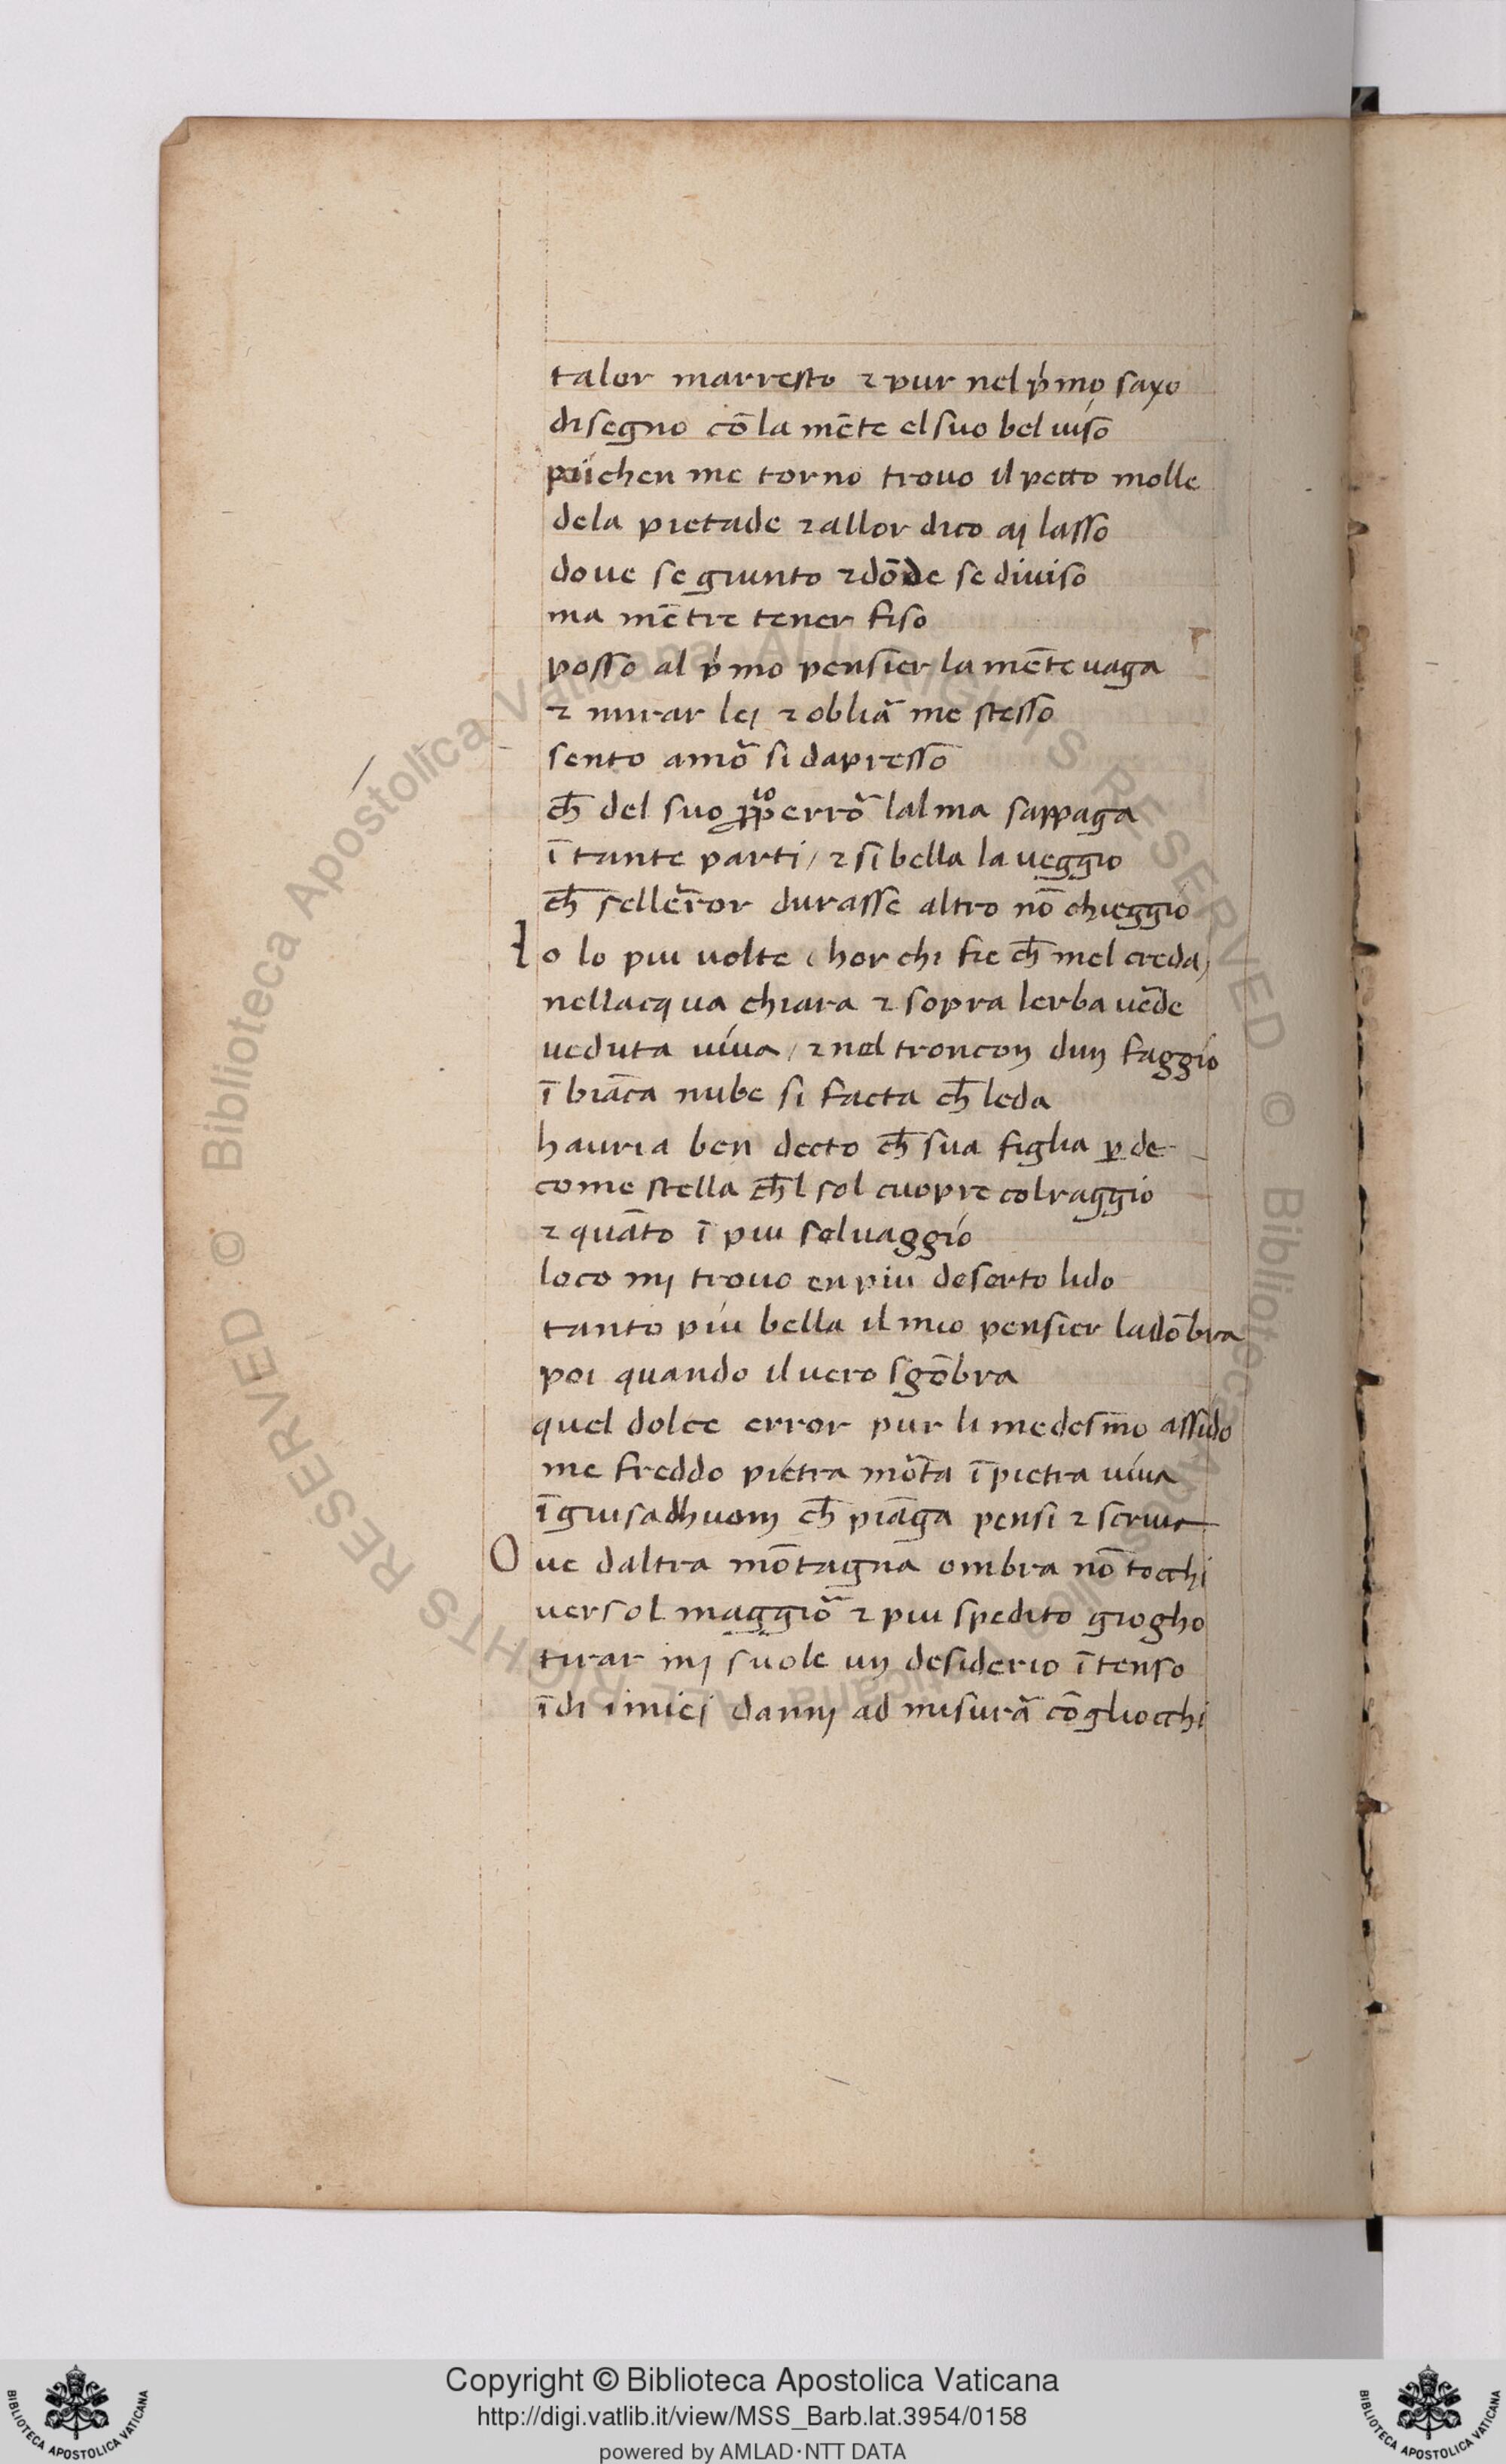 talor marresto ⁊ pur nel pͥmo saxo
disegno cō la mēte el suo bel uiso
poi chen me torno trouo il petto molle
dela pietade ⁊ allor dico aj lasso
doue se giunto ⁊ dōde se diuiso
ma mētre tener fiso
posso al pͥmo pensier la mēte uaga
⁊ mirar lej ⁊ obliā me stesso
sento amō si dapresso
ch̄ del suo ꝓpͥo errō lalma sappaga
ī tante parti / ⁊ si bella la ueggio
ch̄ sellerror durasse altro nō chieggio
Io lo piu uolte ( hor chi fie ch̄ mel creda )
nellacqua chiara ⁊ sopra lerba uēde
ueduta uiua / ⁊ nel troncon dun faggio
ī biāca nube si facta ch̄ leda
hauria ben decto ch̄ sua figlia ꝑde
come stella ch̄l sol cuopre col raggio
⁊ quāto ī piu seluaggio
loco mj trouo en piu deserto lido
tanto piu bella il mio pensier ladōbra
poi quando il uero sgōbra
quel dolce error pur li medesmo assido
me freddo pietra mōta ī pietra uiua
ī guisa dhuom ch̄ piāga pensi ⁊ scriua
Oue daltra mōtagna ombra nō tocchi
uersol maggiō ⁊ piu spedito giogho
tirar mj suole un desiderio ītenso
īdi i miej dannj ad misurā cō gliocchi
© Biblioteca Apostolica Vaticana ALL RIGHTS RESERVED © Biblioteca Apostolica Vaticana ALL RIGHTS RESERVED
Copyright © Biblioteca Apostolica Vaticana
http://digi.vatlib.it/view/MSS_Barb.lat.3954/0158
powered by AMLAD·NTT DATA
BIBLIOTECA APOSTOLICA VATICANA
BIBLIOTECA APOSTOLICA VATICANA